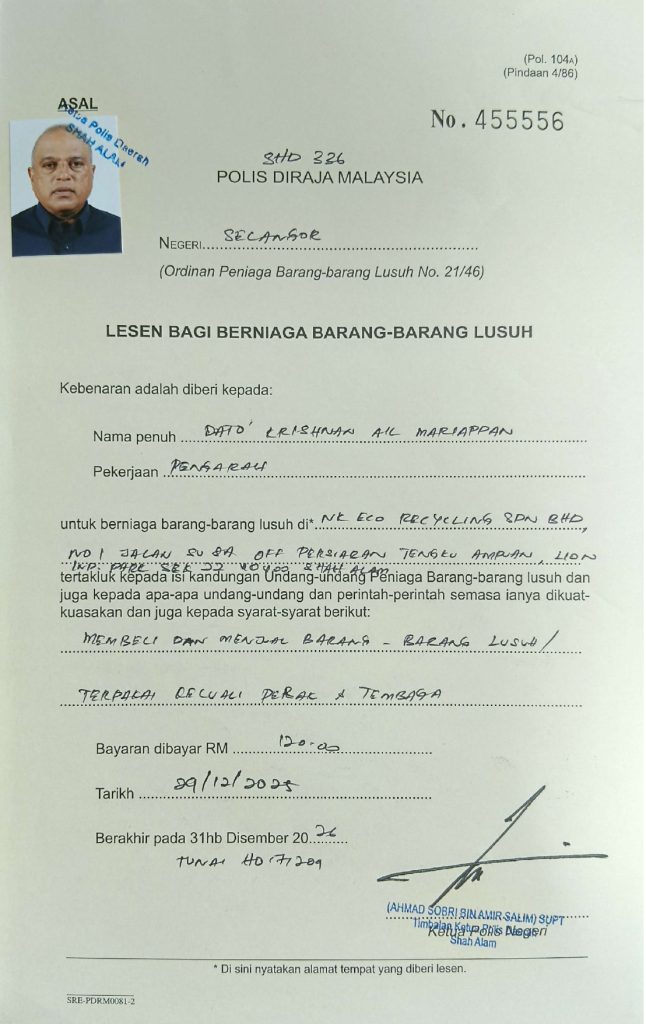 (Pol. 104A)
(Pindaan 4/86)
ASAL
Ketua Polis Daerah
SHAH ALAM
No. 455556
SHD 336
POLIS DIRAJA MALAYSIA
NEGERI SELANGOR
(Ordinan Peniaga Barang-barang Lusuh No. 21/46)
LESEN BAGI BERNIAGA BARANG-BARANG LUSUH
Kebenaran adalah diberi kepada:
Nama penuh DATO' KRISHNAN A/L MARIAPPAN
Pekerjaan PENGARAH
untuk berniaga barang-barang lusuh di* NK ECO RECYCLING SDN BHD,
NO 1 JALAN SU 8A OFF PERSIARAN TENGKU AMPUAN, LION
IND. PARK SEK 22 40400 SHAH ALAM
tertakluk kepada isi kandungan Undang-undang Peniaga Barang-barang lusuh dan
juga kepada apa-apa undang-undang dan perintah-perintah semasa ianya dikuat-
kuasakan dan juga kepada syarat-syarat berikut:
MEMBELI DAN MENJUAL BARANG - BARANG LUSUH/
TERPAKAI KECUALI PERAK & TEMBAGA
Bayaran dibayar RM 120.00
Tarikh 29/12/2025
Berakhir pada 31hb Disember 2026
TUNAI
(AHMAD SOBRI BIN AMIR SALIM) SUPT
Timbalan Ketua Polis Daerah
Ketua Polis Negeri
Shah Alam
* Di sini nyatakan alamat tempat yang diberi lesen.
SRE-PDRM0081-2